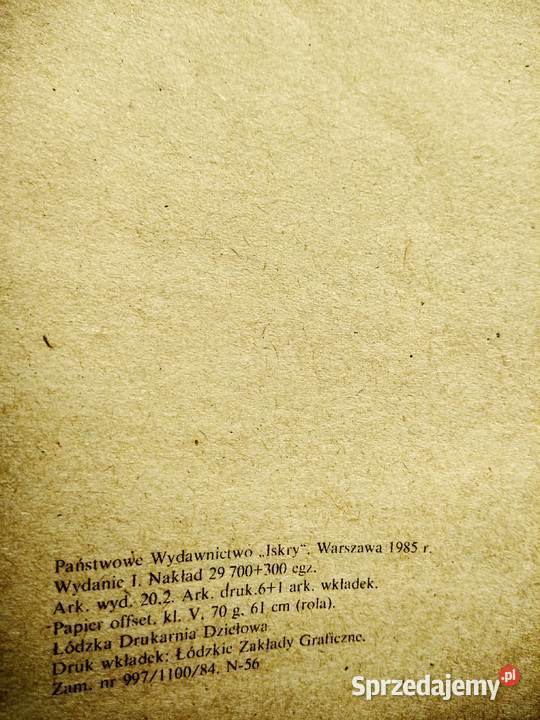 Państwowe Wydawnictwo „Iskry", Warszawa 1985 r.
Wydanie I. Nakład 29 700+300 egz.
Ark. wyd. 20,2. Ark. druk.6+1 ark. wkładek.
Papier offset. kl. V, 70 g, 61 cm (rola).
Łódzka Drukarnia Dziełowa.
Druk wkładek: Łódzkie Zakłady Graficzne.
Zam. nr 997/1100/84. N-56
Sprzedajemy.pl